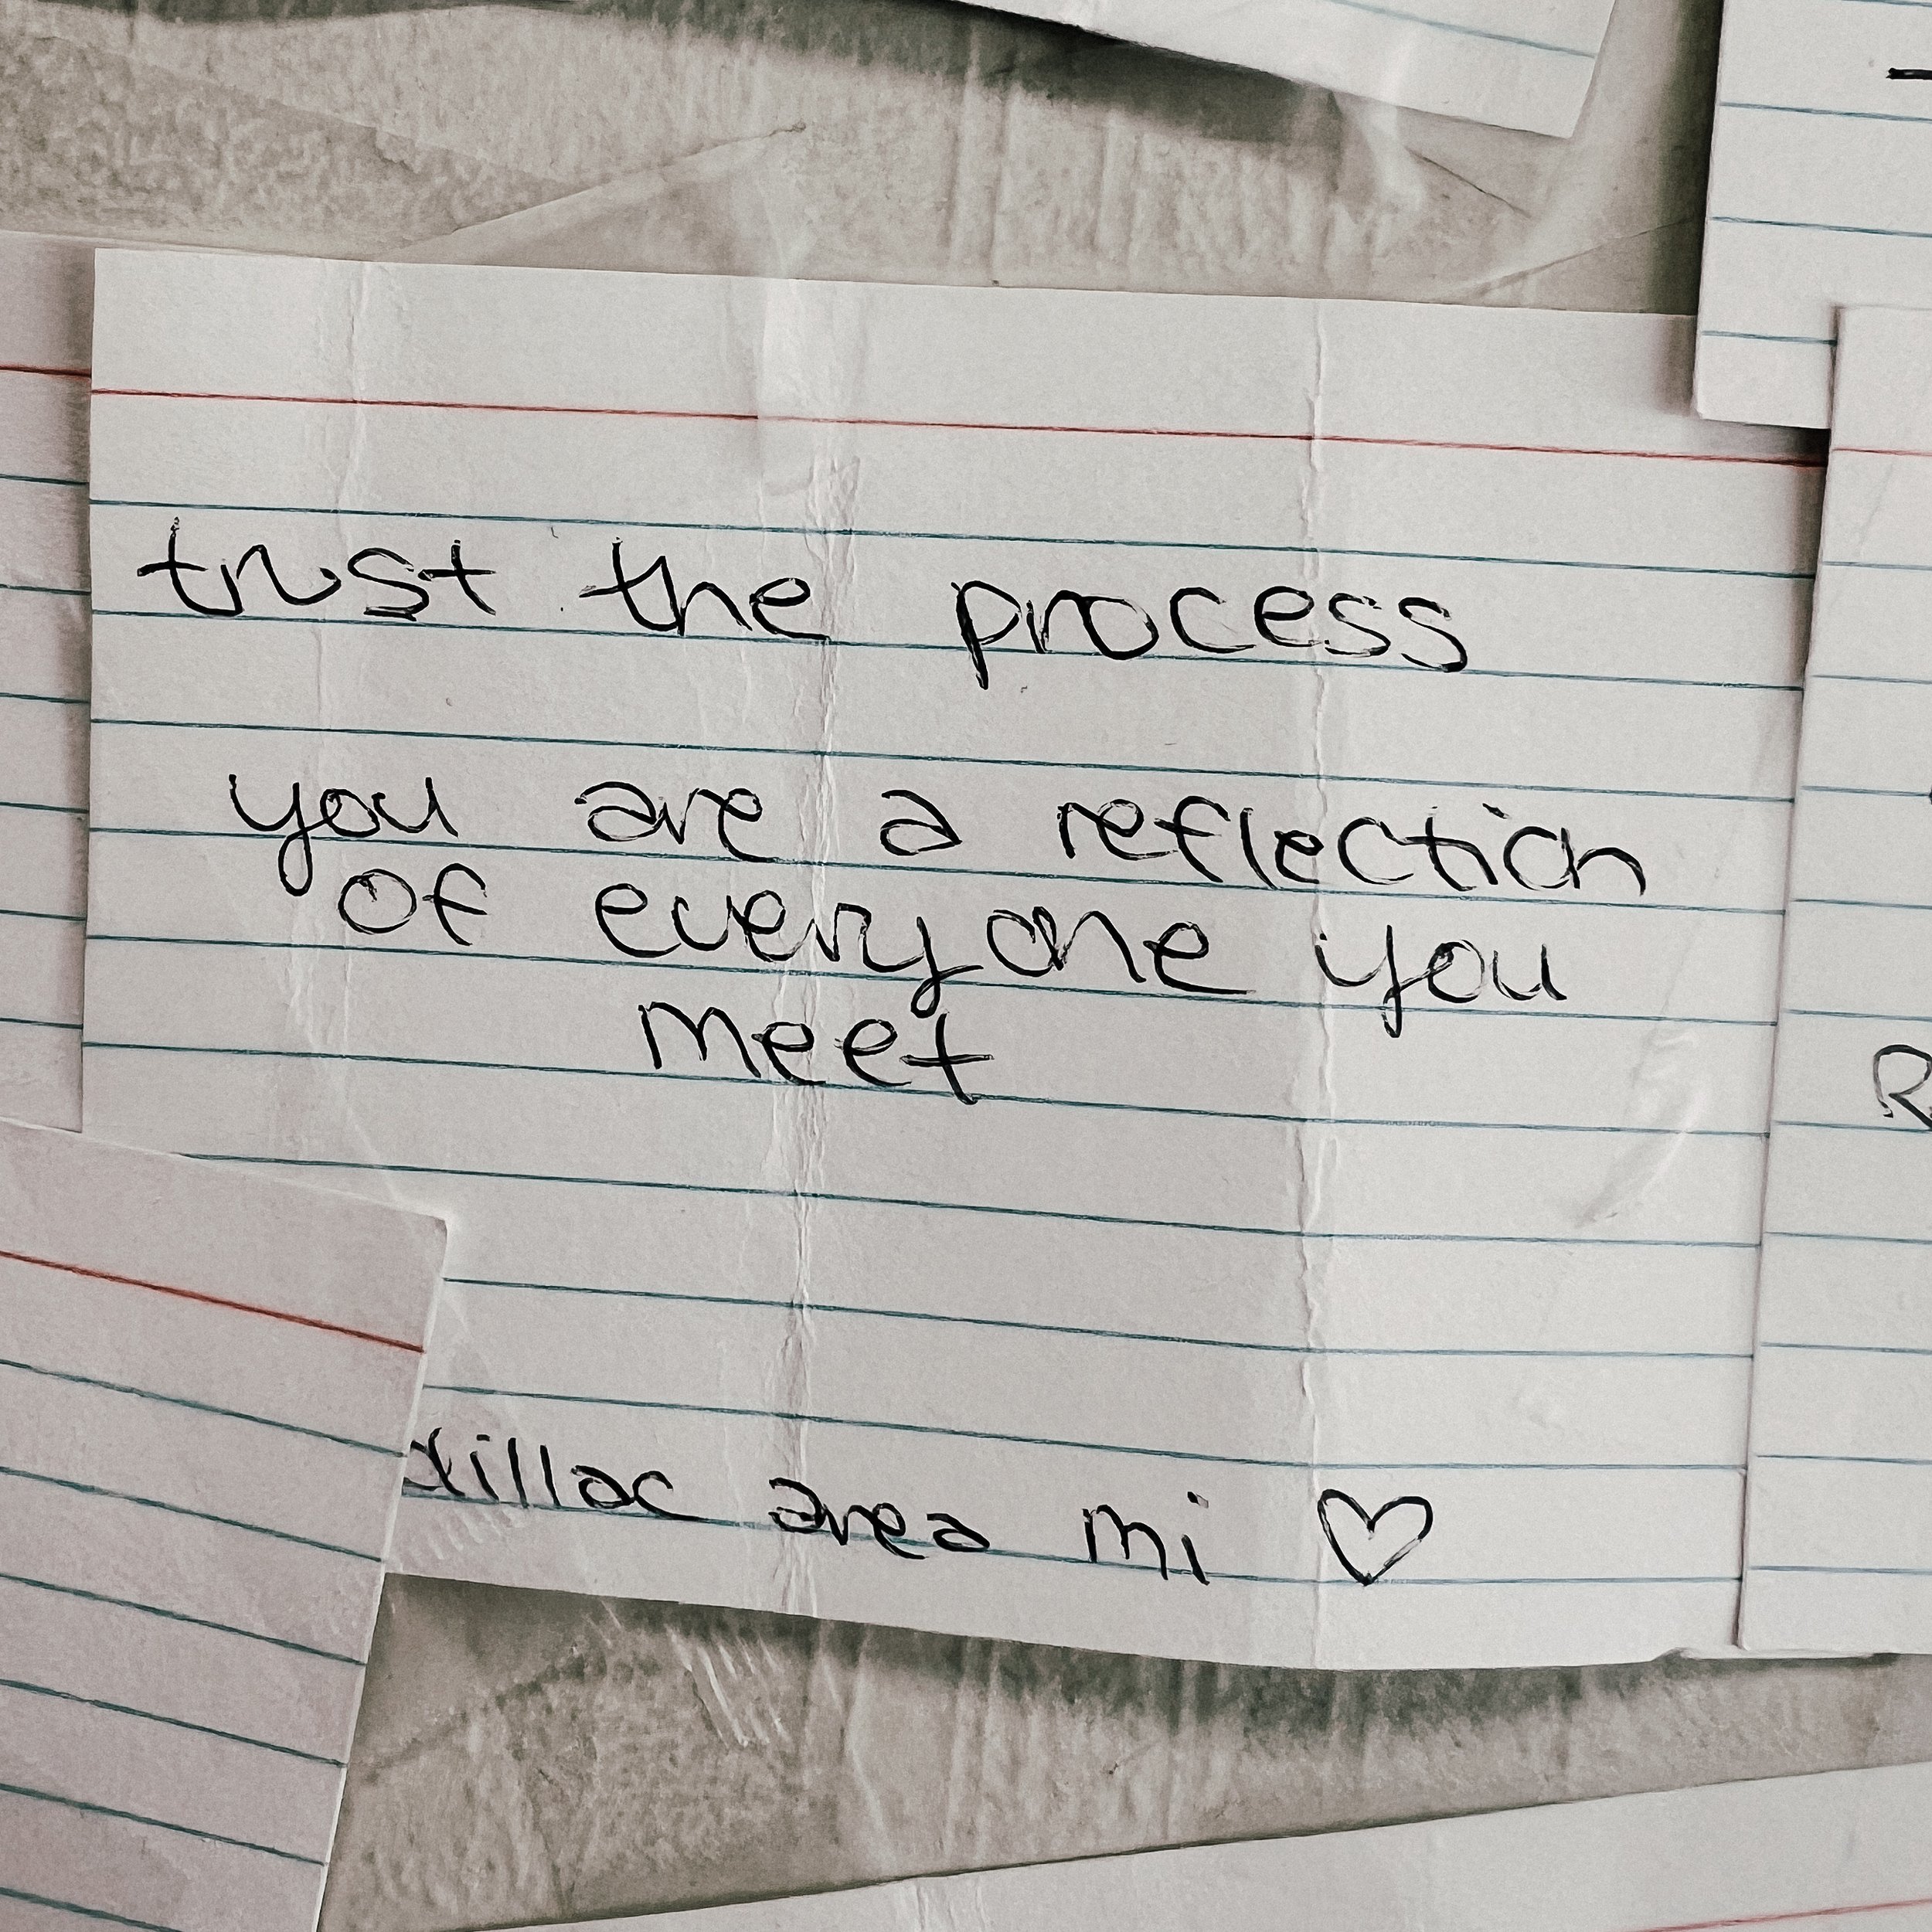 trust the process
you are a reflection
of everyone you
meet
dillac area mi ♡
R